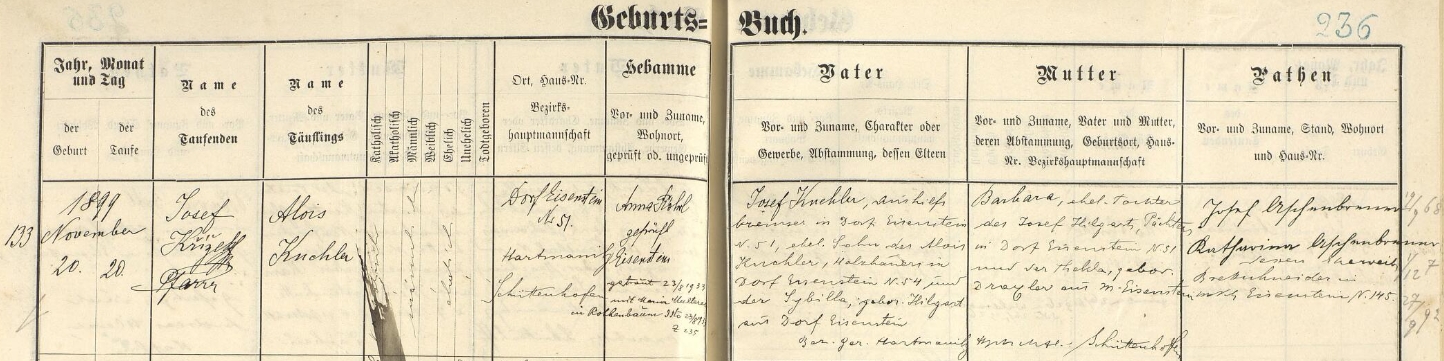 Geburts=Buch.
236
Jahr, Monat und Tag
der Geburt
der Taufe
Name des Taufenden
Name des Täuflings
Katholisch
Akatholisch
Männlich
Weiblich
Ehelich
Unehelich
Todtgeboren
Ort, Haus-Nr.
Bezirks-
hauptmannschaft
Hebamme
Vor- und Zuname,
Wohnort,
geprüft od. ungeprüft
Vater
Vor- und Zuname, Charakter oder
Gewerbe, Abstammung, dessen Eltern
Mutter
Vor- und Zuname, Vater und Mutter,
deren Abstammung, Geburtsort, Haus-
Nr. Bezirkshauptmannschaft
Pathen
Vor- und Zuname, Stand, Wohnort
und Haus-Nr.
133
1899
November
20. 20.
Josef
Pfarrer
Alois
Kuchler
Dorf Eisenstein
N. 51.
Hartmanitz
Schüttenhofen
Anna
geprüft
Eisenstein
Josef Kuchler, Aushilfs
bremser in Dorf Eisenstein
N. 51, ehel. Sohn des Alois
Kuchler, Holzhauers in
Dorf Eisenstein N. 54 und
der Sybilla, gebor. Hilgart
aus Dorf Eisenstein
Ger. Hartmanitz
Barbara, ehel. Tochter
des Josef Hilgart, Pächter
in Dorf Eisenstein N 51
und der Thekla, gebor.
Draxler aus M. Eisenstein
Schüttenhofen
Josef Aschenbrenner
Katharina Aschenbrenner
dessen Eheweib
Eisenstein N. 145.